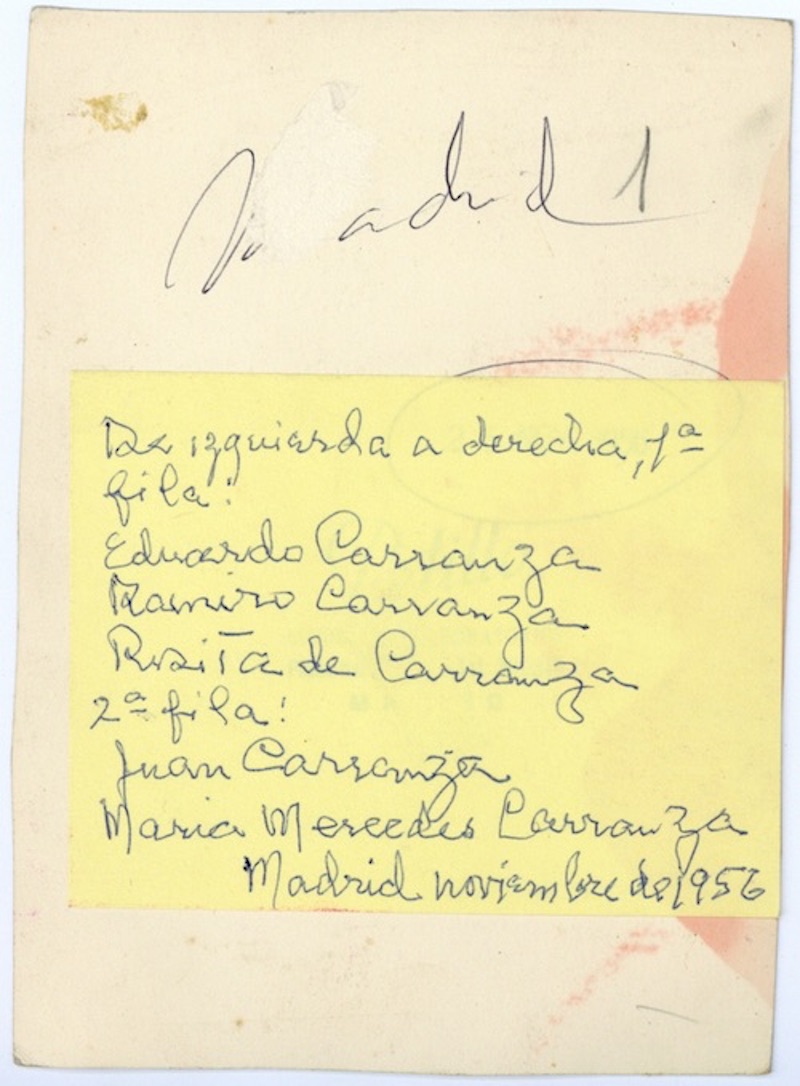 Madrid 1
De izquierda a derecha, 1ª
fila:
Eduardo Carranza
Ramiro Carranza
Rosita de Carranza
2ª fila:
Juan Carranza
Maria Mercedes Carranza
Madrid noviembre de 1956